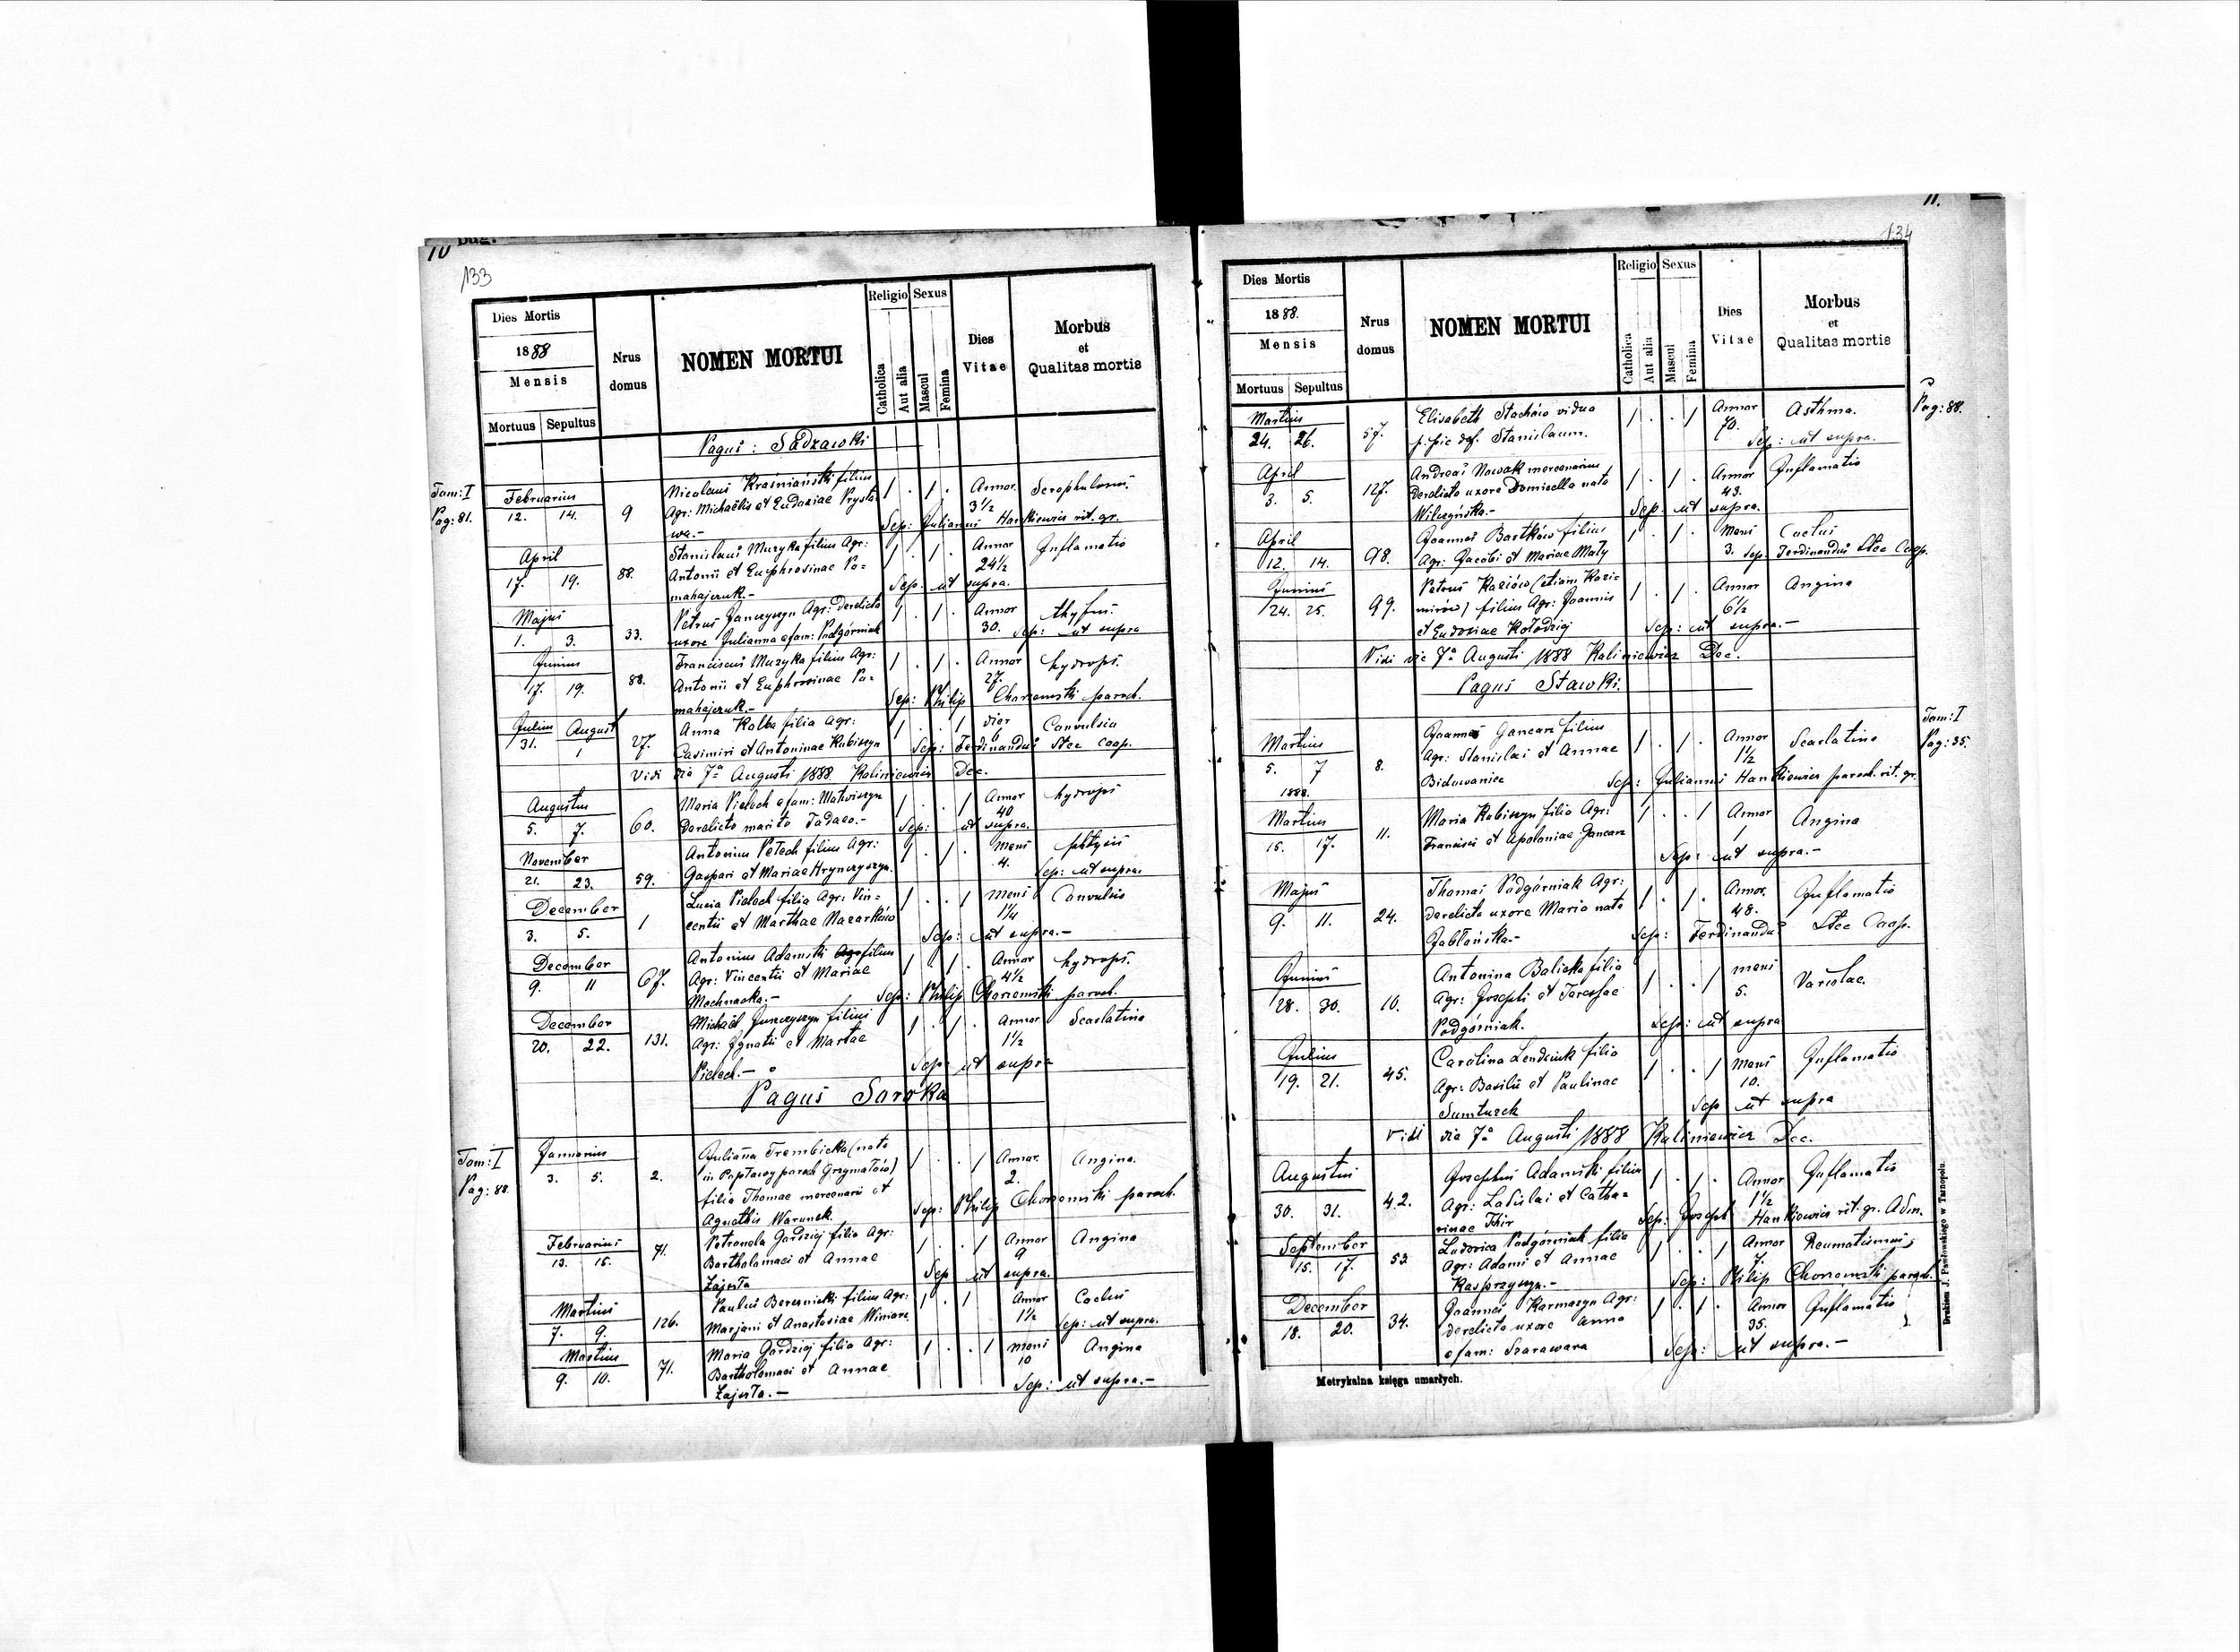 10
133
Dies Mortis
1888
Mensis
Mortuus Sepultus
Nrus domus
NOMEN MORTUI
Religio
Catholica
Aut alia
Sexus
Mascul
Femina
Dies Vitae
Morbus et Qualitas mortis
Pagus: Sadzawki
Tom: I
Pag: 81.
Februarius
12. 14. 9
Nicolaus Kraśniański filius
Agr: Michaëlis et Eudoxiae Prysta
wa.-
1 . 1 . Annor. 3 1/2 Scrophulosus.
Sep: Julianus Hankiewicz rit. gr.
April
17. 19. 88.
Stanislaus Muzyka filius Agr:
Antonii et Euphrosinae Po=
mahajczuk.-
1 . 1 . Annor 24 1/2 Inflamatio
Sep: ut supra.
Majus
1. 3. 33.
Petrus Janczyszyn Agr: derelicta
uxore Julianna e fam: Podgórniak
1 . 1 . Annor 30. thyfus.
Sep: ut supra
Junius
17. 19. 88.
Franciscus Muzyka filius Agr:
Antonii et Euphrosinae Po=
mahajczuk.-
1 . 1 . Annor 27. hydrops.
Sep: Philip Chorzemski paroch.
Julius August
31. 1 27.
Anna Kolba filia Agr:
Casimiri et Antoninae Kubiszyn
1 . . 1 dier 6 Convulsio
Sep: Ferdinandus Stec Coop.
Vidi die 7a Augusti 1888. Kaliniewicz Dec.
Augustus
5. 7. 60.
Maria Pielech e fam: Matwiszyn
derelicto marito Tadaeo.-
1 . . 1 Annor 40 hydrops
Sep: ut supra.
November
21. 23. 59.
Antonius Pelech filius Agr:
Gaspari et Mariae Hrynczyszyn.
1 . 1 . mens 4. phtysis
Sep: ut supra.
December
3. 5. 1
Lucia Pielech filia Agr: Vin=
centii et Marthae Nazarków
1 . . 1 mens 1 1/4 Convulsio
Sep: ut supra.-
December
9. 11 67.
Antonius Adamski filius
Agr: Vincentii et Mariae
Mochnacka.-
1 . 1 . Annor 4 1/2 hydrops.
Sep: Philip Chorzemski paroch.
December
20. 22. 131.
Michaël Junczyszyn filius
Agr: Ignatii et Martae
Pielech.-
1 . 1 . Annor 1 1/2 Scarlatina
Sep: ut supra
Pagus Soroka
Tom: I
Pag: 88.
Januarius
3. 5. 2.
Juliana Trembicka (nata
in Poplawy paroch Grzymałów)
filia Thomae mercenarii et
Agnethis Warunek.
1 . . 1 Annor. 2. Angina.
Sep: Philip Chorzemski paroch.
Februarius
13. 15. 71.
Petronela Gardziej filia Agr:
Bartholomaei et Annae
Zajszła
1 . . 1 Annor 9 Angina
Sep ut supra.
Martius
7. 9. 126.
Paulus Bereznicki filius Agr:
Marjani et Anastasiae Winiarz
1 . 1 Annor 1 1/2 Coctus
Sep: ut supra.
Martius
9. 10. 71.
Maria Gardziej filia Agr:
Bartholomaei et Annae
Zajszła.-
1 . . 1 mens 10 Angina
Sep: ut supra.-
11.
134
Dies Mortis
1888.
Mensis
Mortuus Sepultus
Nrus domus
NOMEN MORTUI
Religio
Catholica
Aut alia
Sexus
Mascul
Femina
Dies Vitae
Morbus et Qualitas mortis
Pag: 88.
Martius
24. 26. 57.
Elisabeth Stachów vidua
p. pie def. Stanislaum.
1 . . 1 Annor 70. Asthma.
Sep: ut supra.
April
3. 5. 127.
Andreas Nowak mercenarius
derelicta uxore Domisella nata
Wilczyńska.-
1 . 1 . Annor 43. Inflamatio
Sep: ut supra.
April
12. 14. 98.
Joannes Bartków filius
Agr: Jacobi et Mariae Mały
1 . 1 . mens 3. Coctus
Sep: Ferdinandus Stec Coop.
Junius
24. 25. 99.
Petrus Kaziów (etiam Kazi=
mirów) filius Agr: Joannis
et Eudoxiae Kołodziej
1 . 1 . Annor 6 1/2 Angina
Sep: ut supra.-
Vidi die 7a Augusti 1888 Kaliniewicz Dec.
Pagus Stawki.
Tom: I
Pag: 35.
Martius
5. 7 8.
1888.
Joannes Gancarz filius
Agr: Stanislai et Annae
Bidowaniec
1 . 1 . Annor 1 1/2 Scarlatina
Sep: Julianus Hankiewicz paroch. rit. gr.
Martius
15. 17. 11.
Maria Kubiszyn filia Agr:
Francisci et Apoloniae Gancarz
1 . . 1 Annor 1 Angina
Sep: ut supra.-
Majus
9. 11. 24.
Thomas Podgórniak Agr:
derelicta uxore Maria nata
Jabłońska.-
1 . 1 . Annor. 48. Inflamatio
Sep: Ferdinandus Stec Coop.
Junius
28. 30. 10.
Antonina Balicka filia
Agr: Josephi et Teresae
Podgórniak.
1 . . 1 mens 5. Variolae.
Sep: ut supra
Julius
19. 21. 45.
Carolina Lendziuk filia
Agr: Basilii et Paulinae
Sumturek
1 . . 1 mens 10. Inflamatio
Sep ut supra
Vidi die 7a Augusti 1888 Kaliniewicz Dec.
Augustus
30. 31. 42.
Josephus Adamski filius
Agr: Ladislai et Catha=
rinae Thir
1 . 1 . Annor 1 1/2 Inflamatio
Sep: Joseph Hankiewicz rit. gr. Adm.
September
15. 17. 53.
Ludovica Podgórniak filia
Agr: Adami et Annae
Kasprzyszyn.-
1 . . 1 Annor 7. Reumatismus
Sep: Philip Chorzemski paroch.
December
18. 20. 34.
Joannes Karmazyn Agr:
derelicta uxore Anna
e fam: Szarawara
1 . 1 . Annor 35. Inflamatio
Sep: ut supra.-
Metrykalna księga umarłych.
Drukiem J. Pawłowskiego w Tarnopolu.